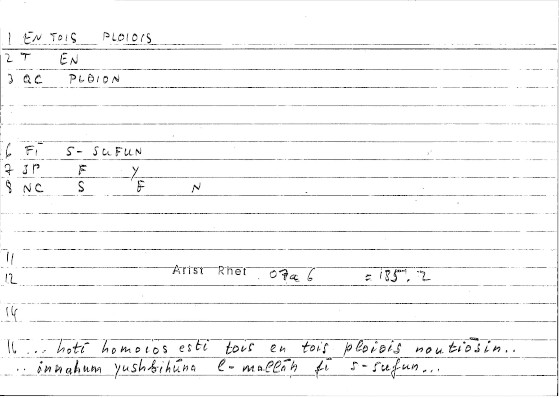 1 EN TOIS PLOIOIS
2 T EN
3 QC PLOION
6 FĪ S-SUFUN
7 JP F Y
8 NC S F N
11
12 Arist Rhet 07a 6 = 185, 2
14
16 ... hoti homoios esti tois en tois ploiois nautiōsin..
.. innahum yushbihūna l-mallāh fī s-sufun...